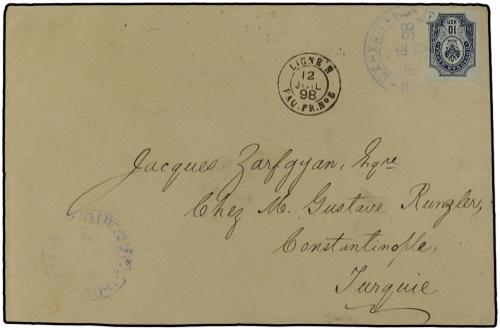 LIGNE N
12
JUIL
98
PAQ. FR. No 6
10
Jacques Zarfgyan, Eqre
Chez M. Gustave Runzler,
Constantinople,
Turquie